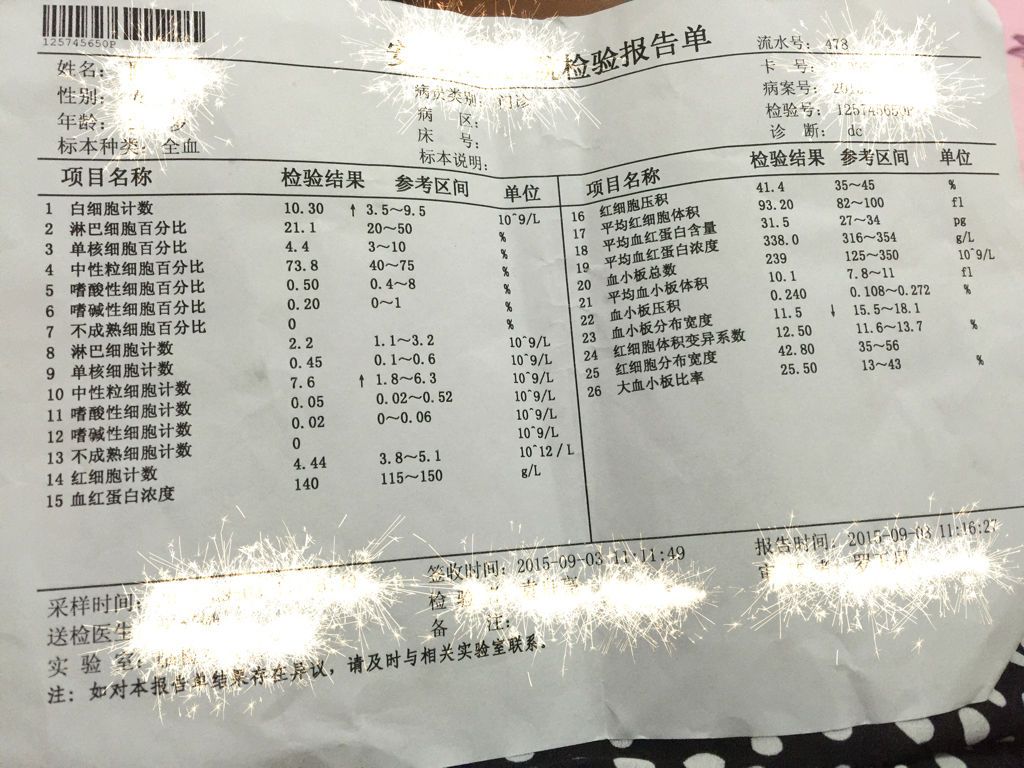 125745650P
检验报告单
流水号: 478
姓名:
卡 号:
性别:
病员类别: 门诊
病案号: 201
年龄:
病 区:
检验号: 125745650P
标本种类: 全血
床 号:
诊 断: dc
标本说明:
项目名称 检验结果 参考区间 单位
1 白细胞计数 10.30 ↑ 3.5~9.5 10^9/L
2 淋巴细胞百分比 21.1 20~50 %
3 单核细胞百分比 4.4 3~10 %
4 中性粒细胞百分比 73.8 40~75 %
5 嗜酸性细胞百分比 0.50 0.4~8 %
6 嗜碱性细胞百分比 0.20 0~1 %
7 不成熟细胞百分比 0 %
8 淋巴细胞计数 2.2 1.1~3.2 10^9/L
9 单核细胞计数 0.45 0.1~0.6 10^9/L
10 中性粒细胞计数 7.6 ↑ 1.8~6.3 10^9/L
11 嗜酸性细胞计数 0.05 0.02~0.52 10^9/L
12 嗜碱性细胞计数 0.02 0~0.06 10^9/L
13 不成熟细胞计数 0 10^9/L
14 红细胞计数 4.44 3.8~5.1 10^12/L
15 血红蛋白浓度 140 115~150 g/L
项目名称 检验结果 参考区间 单位
16 红细胞压积 41.4 35~45 %
17 平均红细胞体积 93.20 82~100 fl
18 平均血红蛋白含量 31.5 27~34 pg
19 平均血红蛋白浓度 338.0 316~354 g/L
20 血小板总数 239 125~350 10^9/L
21 平均血小板体积 10.1 7.8~11 fl
22 血小板压积 0.240 0.108~0.272 %
23 血小板分布宽度 11.5 ↓ 15.5~18.1
24 红细胞体积变异系数 12.50 11.6~13.7 %
25 红细胞分布宽度 42.80 35~56
26 大血小板比率 25.50 13~43 %
采样时间:
签收时间: 2015-09-03 11:11:49
报告时间: 2015-09-03 11:16:27
送检医生
检
审
实 验 室:
备 注:
注: 如对本报告单结果存在异议,请及时与相关实验室联系。